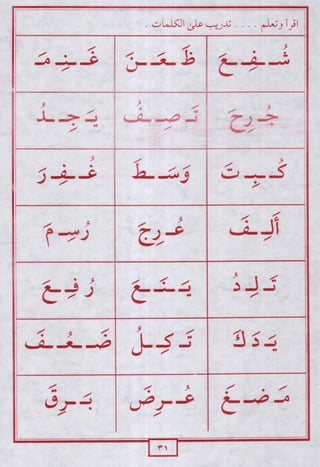 اقرأ وتعلم . . . . تدريب على الكلمات .
شُـفِـعَ ظَـعَـنَ غَـنِـمَ
جُـرِحَ تَـصِـفُ يَـجِـدُ
كُـبِـتَ وَسَـطَ غُـفِـرَ
أَلِـفَ عُـرِجَ رُسِـمَ
تَـلِـدُ يَـنَـعَ رُفِـعَ
يَـدَكَ تَـكِـلُ ضَـعُـفَ
مَـضَـغَ عُـرِضَ بَـرِقَ
٣١